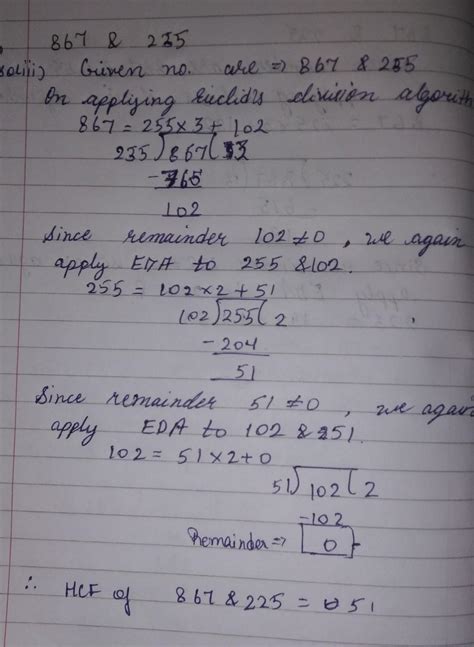 867 & 235
Soliii) Given no. are => 867 & 255
On applying Euclid's division algorith
867 = 255 x 3 + 102
235) 867 ( 3
- 765
102
Since remainder 102 ≠ 0 , we again
apply EDA to 255 & 102.
255 = 102 x 2 + 51
102) 255 ( 2
- 204
51
Since remainder 51 ≠ 0 , we again
apply EDA to 102 & 51.
102 = 51 x 2 + 0
51) 102 ( 2
-102
Remainder => 0
∴ HCF of 867 & 225 = 51